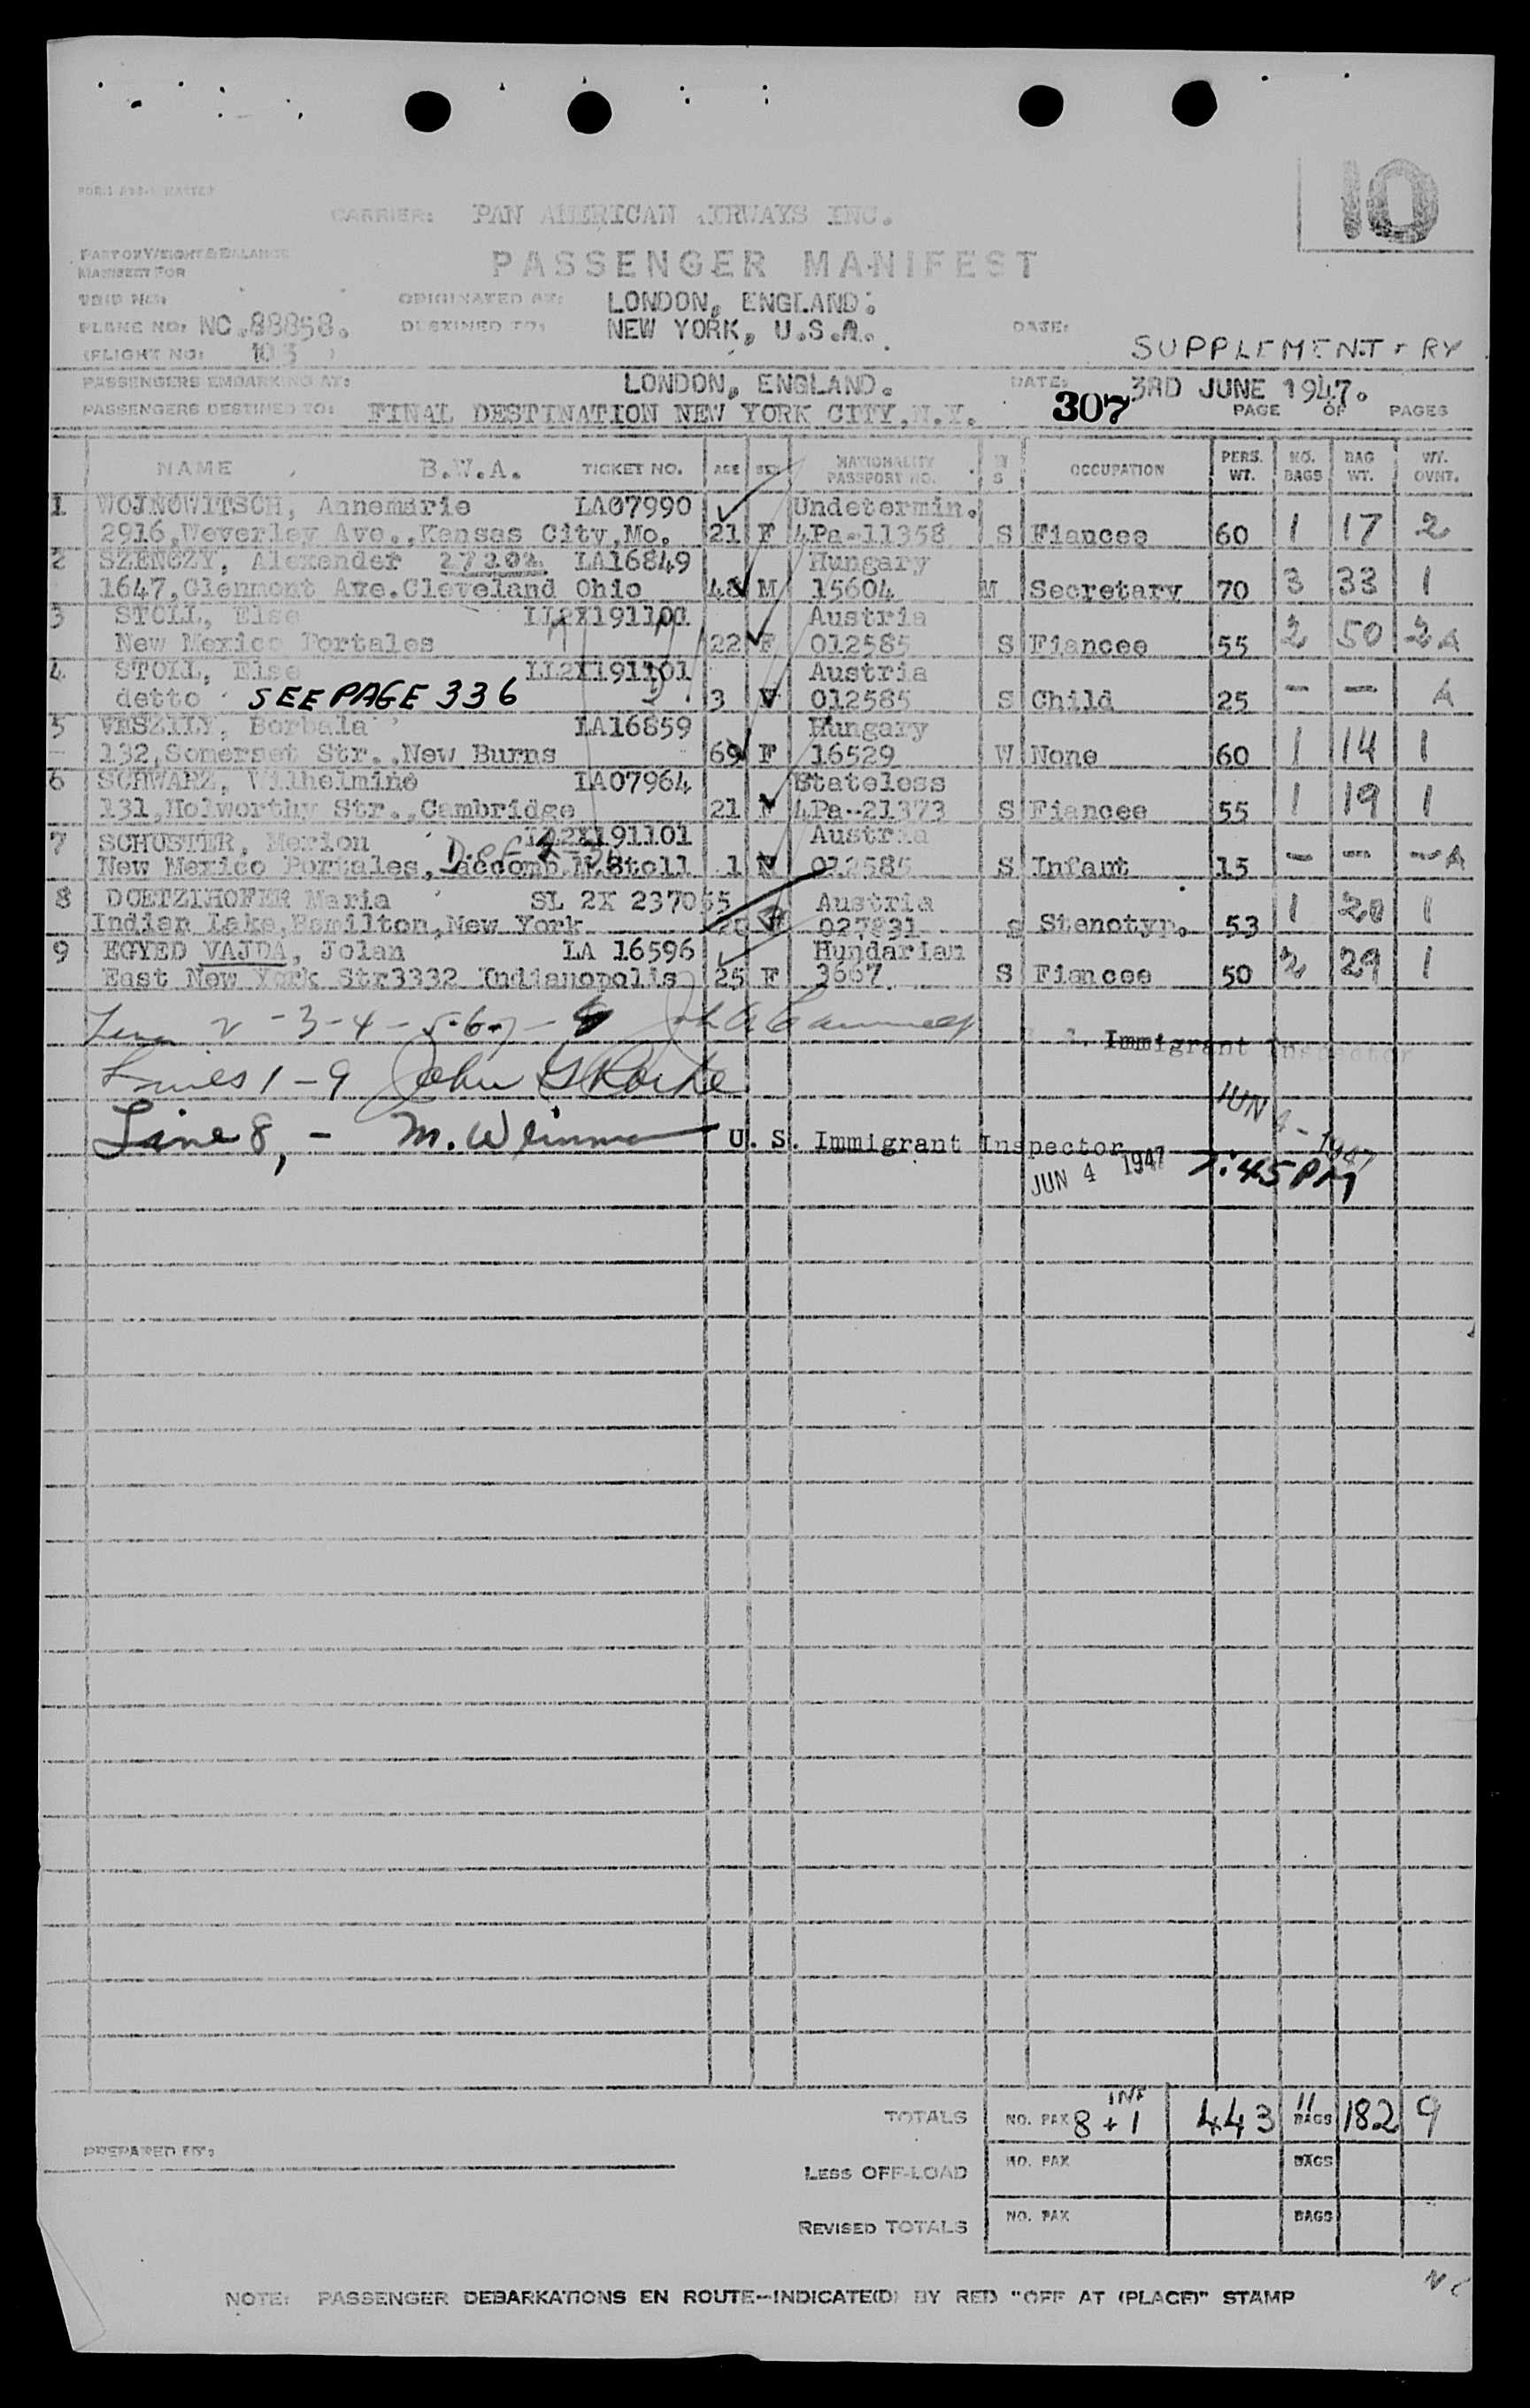 10
CARRIER: PAN AMERICAN AIRWAYS INC.
PART OF WEIGHT & BALANCE
MANIFEST FOR
PASSENGER MANIFEST
TRIP NO:
ORIGINATED AT: LONDON, ENGLAND.
PLANE NO: NC.88858.
DESTINED TO: NEW YORK, U.S.A.
DATE:
(FLIGHT NO: 103 )
SUPPLEMENTARY
PASSENGERS EMBARKING AT: LONDON, ENGLAND. DATE: 3RD JUNE 1947.
PASSENGERS DESTINED TO: FINAL DESTINATION NEW YORK CITY, N.Y. 307 PAGE OF PAGES
NAME B.W.A. TICKET NO. AGE SEX NATIONALITY PASSPORT NO. M S OCCUPATION PERS. WT. NO. BAGS BAG WT. WT. OVHT.
1 WOJNOWITSCH, Annemarie LA07990 Undetermin.
2916, Weverley Ave., Kansas City, Mo. 21 F 4Pa-11358 S Fiancee 60 1 17 2
2 SZENCZY, Alexander LA16849 Hungary
1647, Glenmont Ave. Cleveland Ohio 48 M 15604 M Secretary 70 3 33 1
3 STOLL, Else LL2X191101 Austria
New Mexico Portales 22 F 012585 S Fiancee 55 2 50 2 A
4 STOLL, Else LL2X191101 Austria
detto SEE PAGE 336 3 F 012585 S Child 25 - - A
5 VESZILY, Borbala LA16859 Hungary
132, Somerset Str., New Burns 69 F 16529 W None 60 1 14 1
6 SCHWARZ, Wilhelmine LA07964 Stateless
131, Holworthy Str., Cambridge 21 F 4Pa-21373 S Fiancee 55 1 19 1
7 SCHUSTER, Merion LL2X191101 Austria
New Mexico Portales, accomp. M. Stoll 1 012585 S Infant 15 - - - A
8 DOETZLHOFER Maria SL 2X 237065 Austria
Indian Lake, Hamilton, New York 20 F 027831 S Stenotyp. 53 1 20 1
9 EGYED VAJDA, Jolan LA 16596 Hundarian
East New York Str 3332 Indianopolis 25 F 3667 S Fiancee 50 2 29 1
2 - 3 - 4 - 5 - 6 - 7 -
Immigrant Inspector
Lines 1 - 9 John
JUN 4 - 1947
Line 8, - M. U. S. Immigrant Inspector
JUN 4 1947 7:45 PM
INF
TOTALS NO. PAX 8 + 1 443 11 BAGS 182 9
PREPARED BY:
LESS OFF-LOAD NO. PAX BAGS
REVISED TOTALS NO. PAX BAGS
NOTE: PASSENGER DEBARKATIONS EN ROUTE--INDICATE(D) BY RED "OFF AT (PLACE)" STAMP